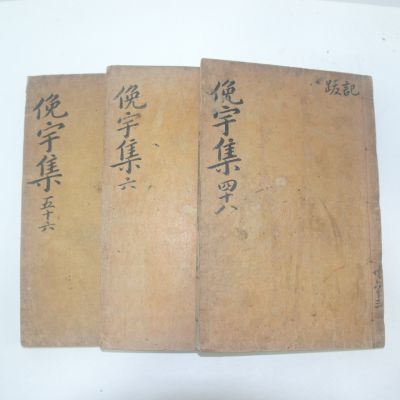 俛宇集 五十六
俛宇集 六
俛宇集 四十八
記
跋